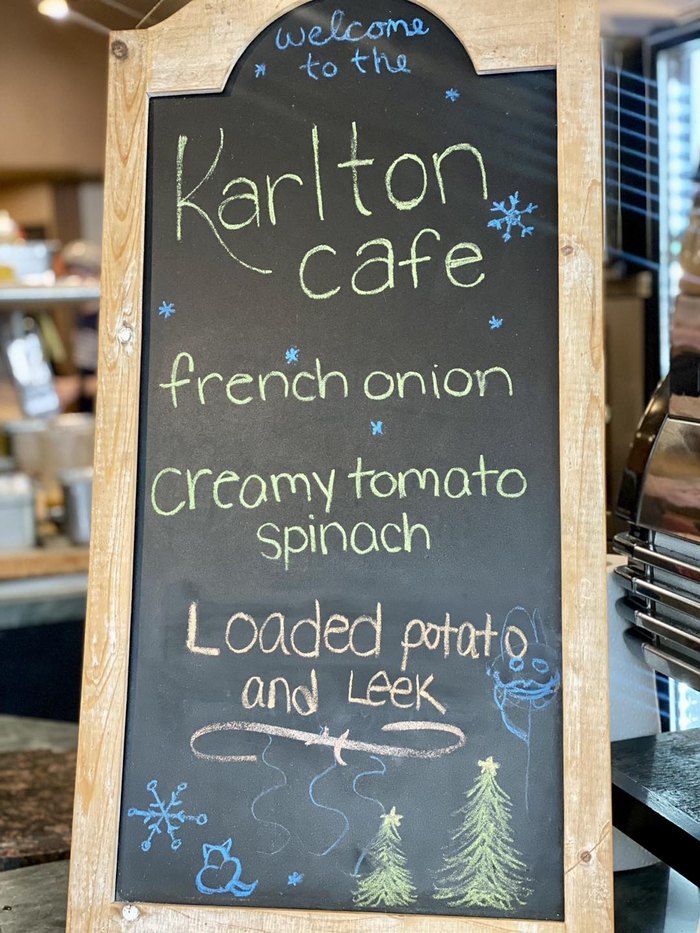 welcome
to the
Karlton
cafe
french onion
creamy tomato
spinach
Loaded potato
and Leek